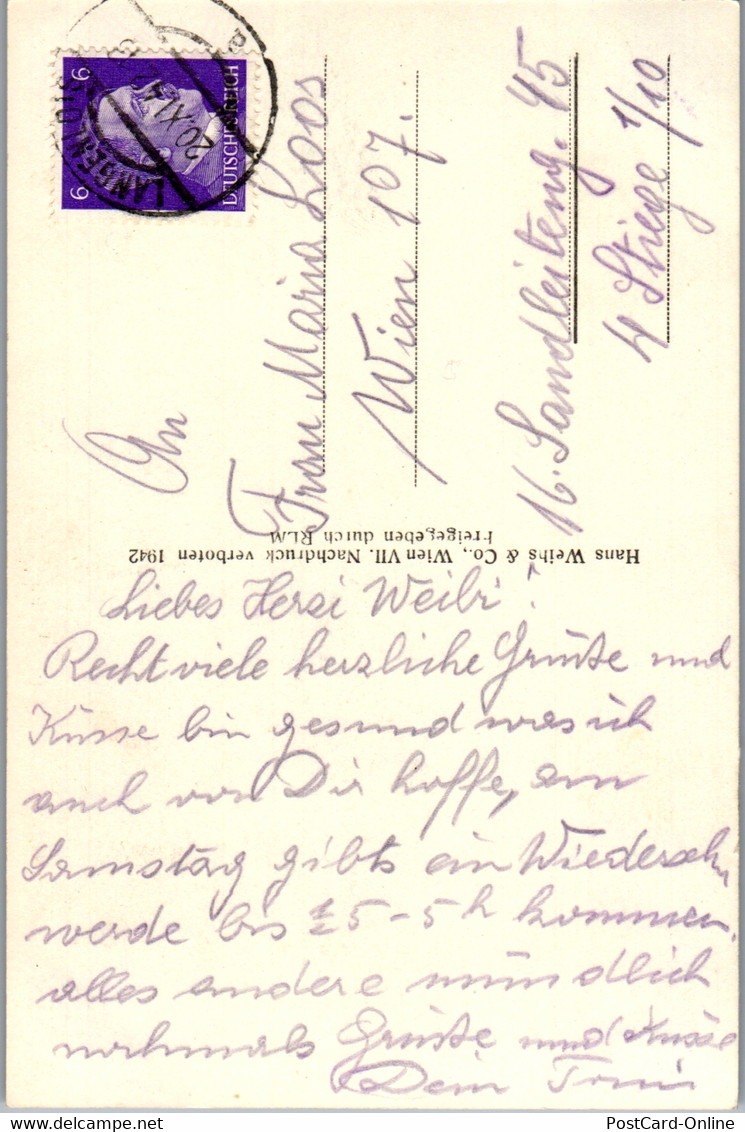 6 6
DEUTSCHES REICH
20.XI.
An
Frau Maria Loos
Wien 107.
16. Sandleiteng. 45
4 Stiege 1/10
Hans Weihs & Co., Wien VII. Nachdruck verboten 1942
Freigegeben durch RLM
Liebes Herzi Weibi!
Recht viele herzliche Grüße und
Küsse bin gesund was ich
auch von Dir hoffe, am
Samstag gibts ein Wiedersehn
werde bis ½5-5h kommen.
alles andere mündlich
nochmals Grüße und Küsse
Dein
PostCard-Online